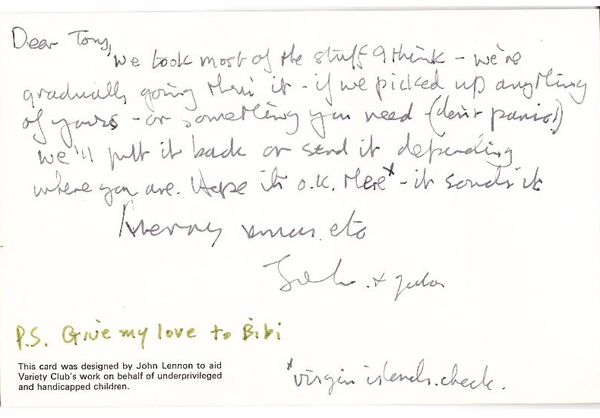 Dear Tony,
we took most of the stuff I think - we're
gradually going thru it - if we picked up anything
of yours - or something you need (don't panic!)
we'll put it back or send it depending
where you are. Hope it's o.k. there* - it sounds it
Merry xmas. etc
John. + Yoko
P.S. Give my love to Bibi
This card was designed by John Lennon to aid
Variety Club's work on behalf of underprivileged
and handicapped children.
*virgin islands. check.